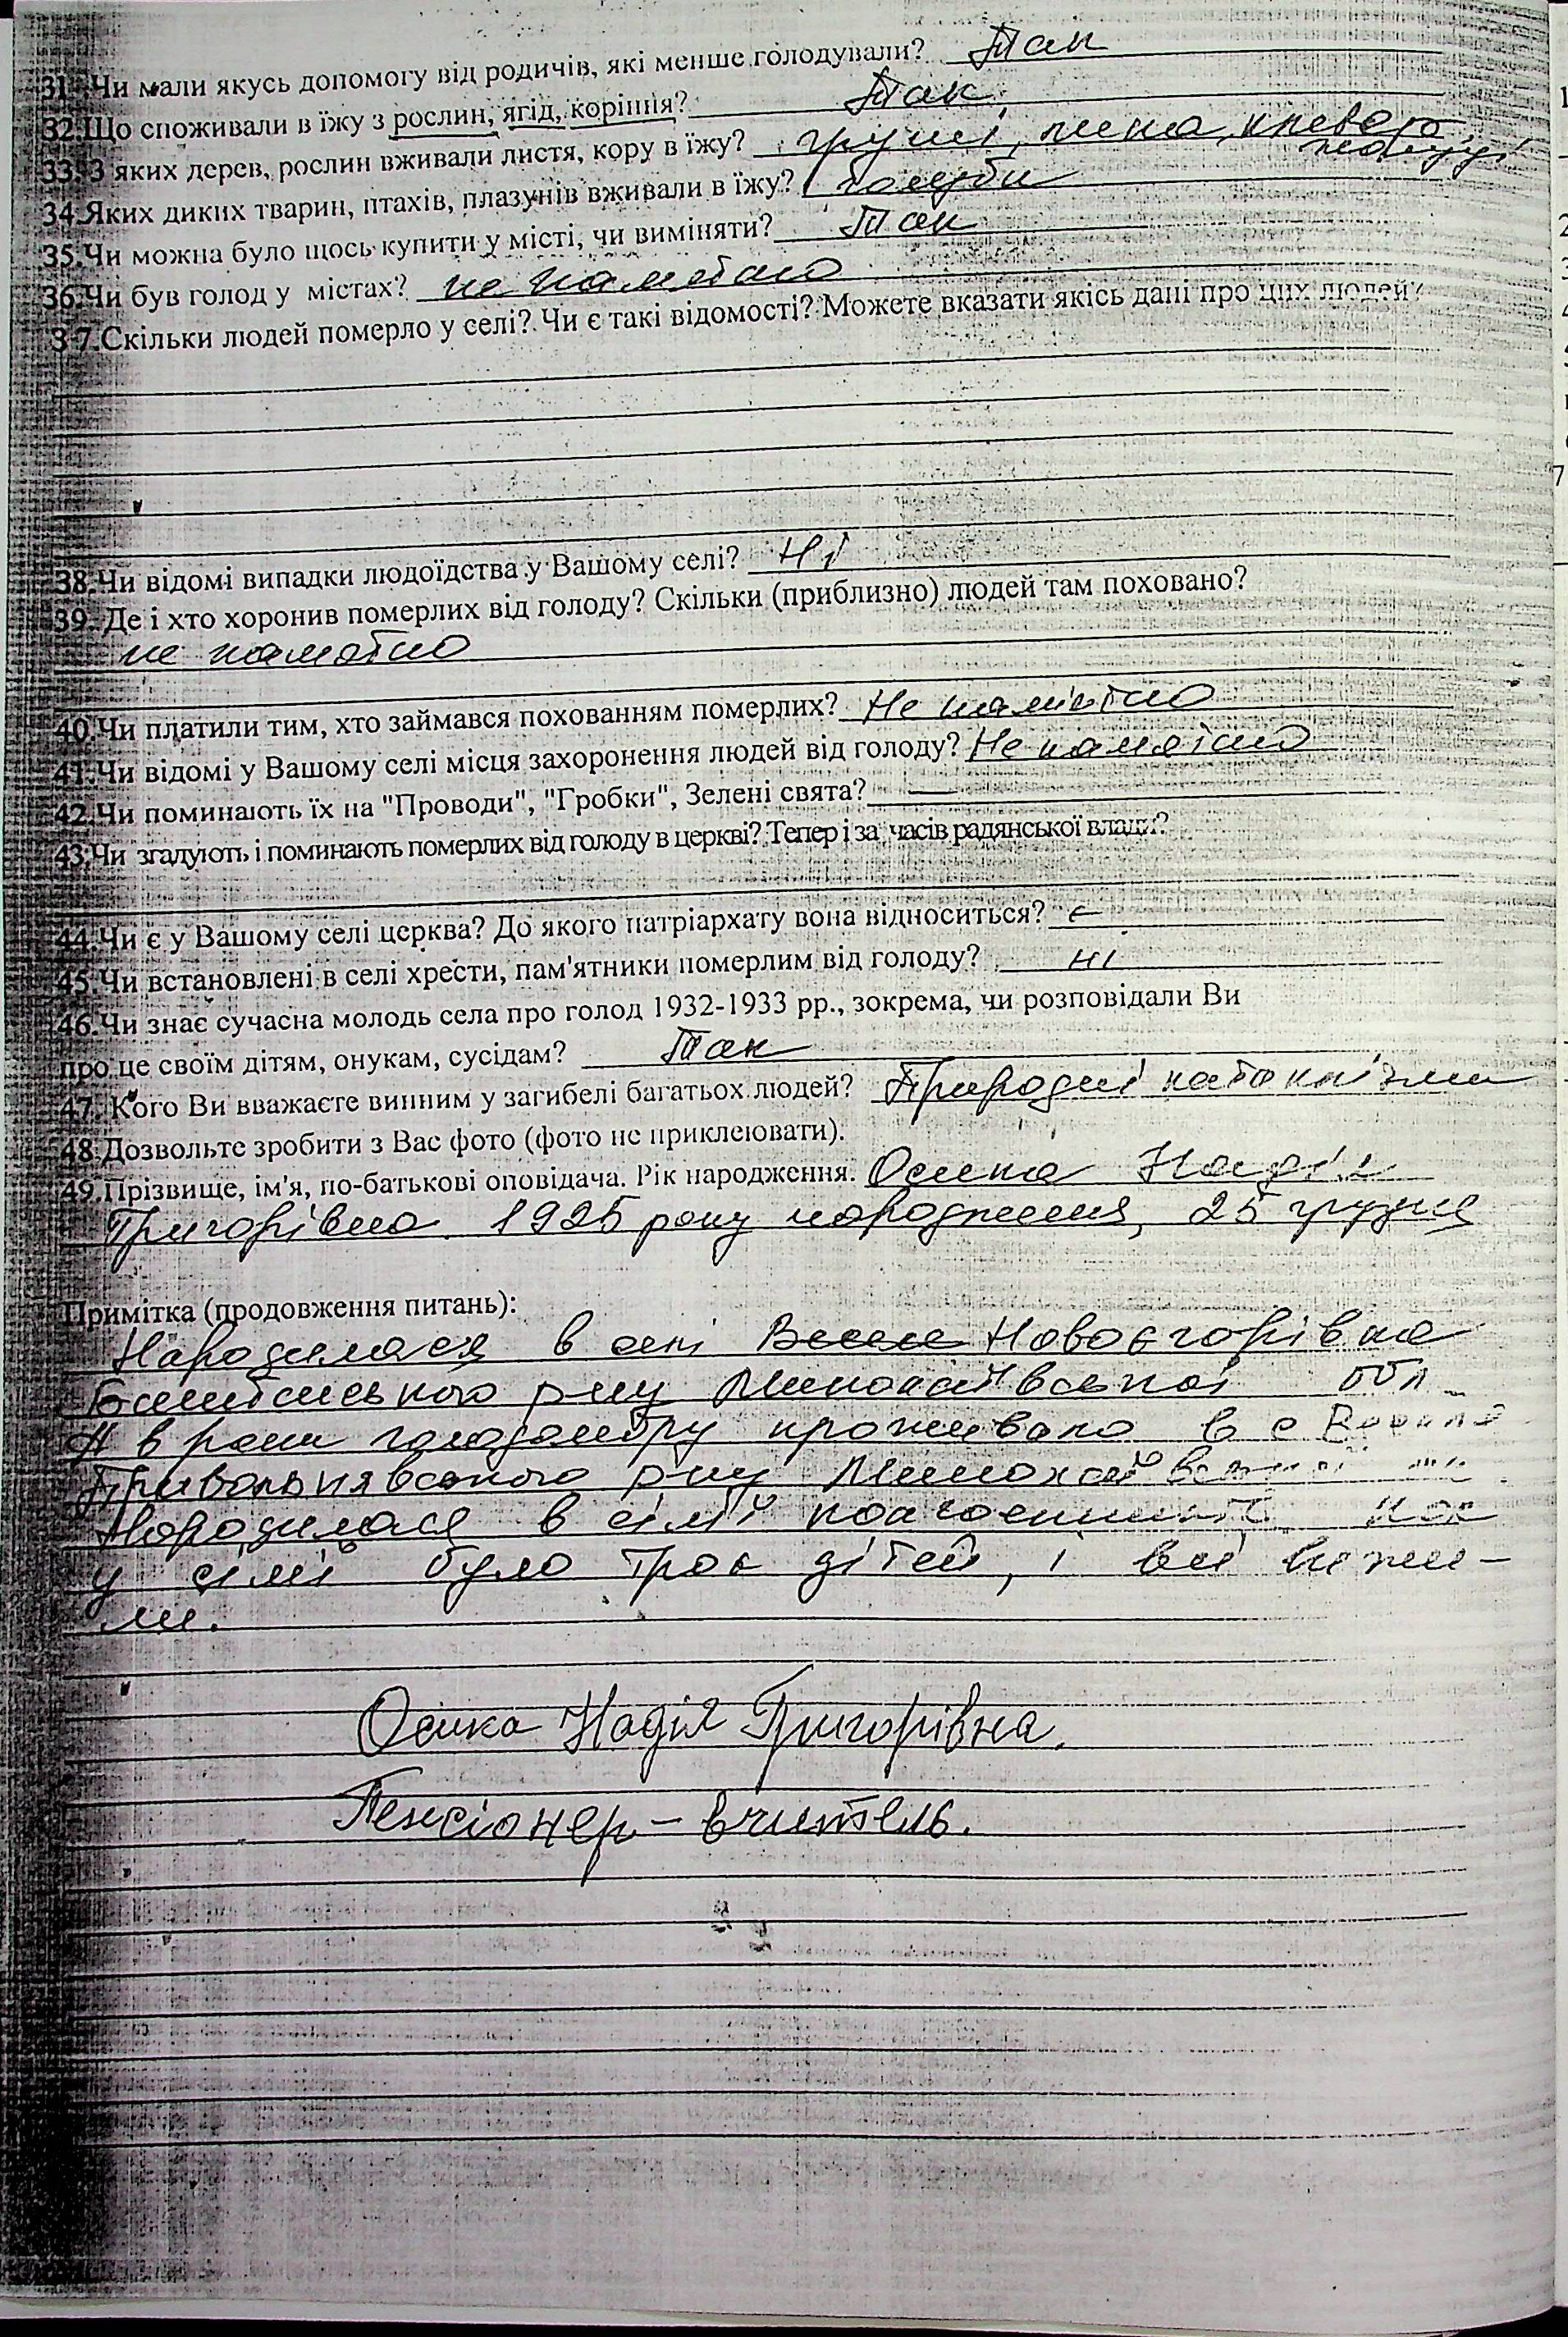 31. Чи мали якусь допомогу від родичів, які менше голодували? Так
32. Що споживали в їжу з рослин, ягід, коріння? Так
33. З яких дерев, рослин вживали листя, кору в їжу? груші, липа,
жолуді
34. Яких диких тварин, птахів, плазунів вживали в їжу? голуби
35. Чи можна було щось купити у місті, чи виміняти? Так
36. Чи був голод у містах? не памятаю
37. Скільки людей померло у селі? Чи є такі відомості? Можете вказати якісь дані про цих людей?
38. Чи відомі випадки людоїдства у Вашому селі? Ні
39. Де і хто хоронив померлих від голоду? Скільки (приблизно) людей там поховано?
не памятаю
40. Чи платили тим, хто займався похованням померлих? Не памятаю
41. Чи відомі у Вашому селі місця захоронення людей від голоду? Не памятаю
42. Чи поминають їх на "Проводи", "Гробки", Зелені свята? —
43. Чи згадують і поминають померлих від голоду в церкві? Тепер і за часів радянської влади?
44. Чи є у Вашому селі церква? До якого патріархату вона відноситься? є
45. Чи встановлені в селі хрести, пам'ятники померлим від голоду? ні
46. Чи знає сучасна молодь села про голод 1932-1933 рр., зокрема, чи розповідали Ви
про це своїм дітям, онукам, сусідам? Так
47. Кого Ви вважаєте винним у загибелі багатьох людей? Природні катаклізми
48. Дозвольте зробити з Вас фото (фото не приклеювати).
49. Прізвище, ім'я, по-батькові оповідача. Рік народження. Осика Надія
Григорівна 1925 року народження, 25 грудня
Примітка (продовження питань):
Народилася в селі Новоєгорівка
р-ну Миколаївської обл.
А в роки голодомору проживала в с
р-ну Миколаївської
Народилася в сім'ї
у сімї було троє дітей, і всі вижи-
ли.
Осика Надія Григорівна.
Пенсіонер – вчитель.